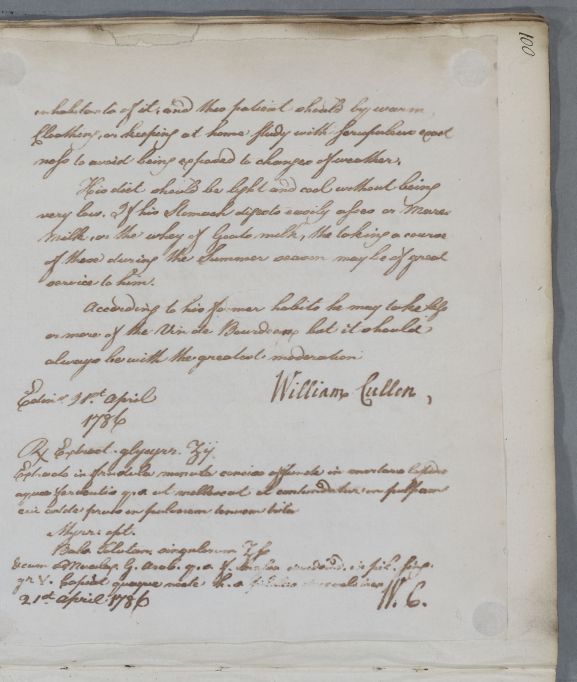 100
inhabitants of it; and this patient should by warm
Cloathing, or keeping at home study with scrupulous exact
ness to avoid being exposed to changes of weather.
His diet should be light and cool without being
very low. If his Stomach digests easily asses or Mares
milk, or the whey of Goats milk, the taking a course
of these during the Summer season may be of great
service to him.
According to his former habits he may take less
or more of the Vin de Bourdeaux but it should
always be with the greatest moderation
William Cullen,
Edinr. 21st April
1786
℞ Extract. glycyrr. ʒij
Extracto in frustula minuta conciso affunde in mortario lapideo
aquae fervent q.s. ut mollescat et contundatur in pulpam
cui adde prius in pulverem tennem trita
Myrr. opt.
Bals. Tolutan. singulorum ʒſs
Deum Mucilag. G. Arab. q.s. f. in pil. sing.
gr. V. Capiat quaque nocte h.s.
21st April 1786
W. C.